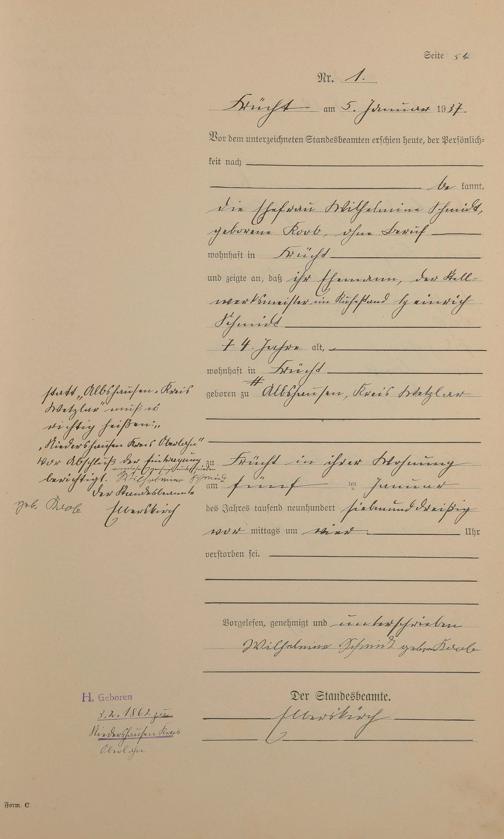 Seite 54
Nr. 1.
Frücht am 5. Januar 1937.
Vor dem unterzeichneten Standesbeamten erschien heute, der Persönlich-
keit nach
be kannt,
die Ehefrau Wilhelmine Schmidt,
geborene Koob, ohne Beruf
wohnhaft in Frücht
und zeigte an, daß ihr Ehemann, der Stell-
werksmeister im Ruhestand Heinrich
Schmidt
74 Jahre alt,
wohnhaft in Frücht
geboren zu # Albshausen, Kreis Wetzlar
statt „Albshausen, Kreis
Wetzlar" muß es
richtig heißen:
„Niedershausen Kreis Oberlahn"
Vor Abschluß der Eintragung
berichtigt. Wilhelmine Schmidt
geb. Koob
Der Standesbeamte
Elberskirch
zu Frücht in ihrer Wohnung
am fünf ten Januar
des Jahres tausend neunhundert siebenunddreißig
vor mittags um vier Uhr
verstorben sei.
Vorgelesen, genehmigt und unterschrieben
Wilhelmine Schmidt geb. Koob
Der Standesbeamte.
Elberskirch
H. Geboren
5.2.1862 zu
Niedershausen Kreis
Oberlahn
Form. C